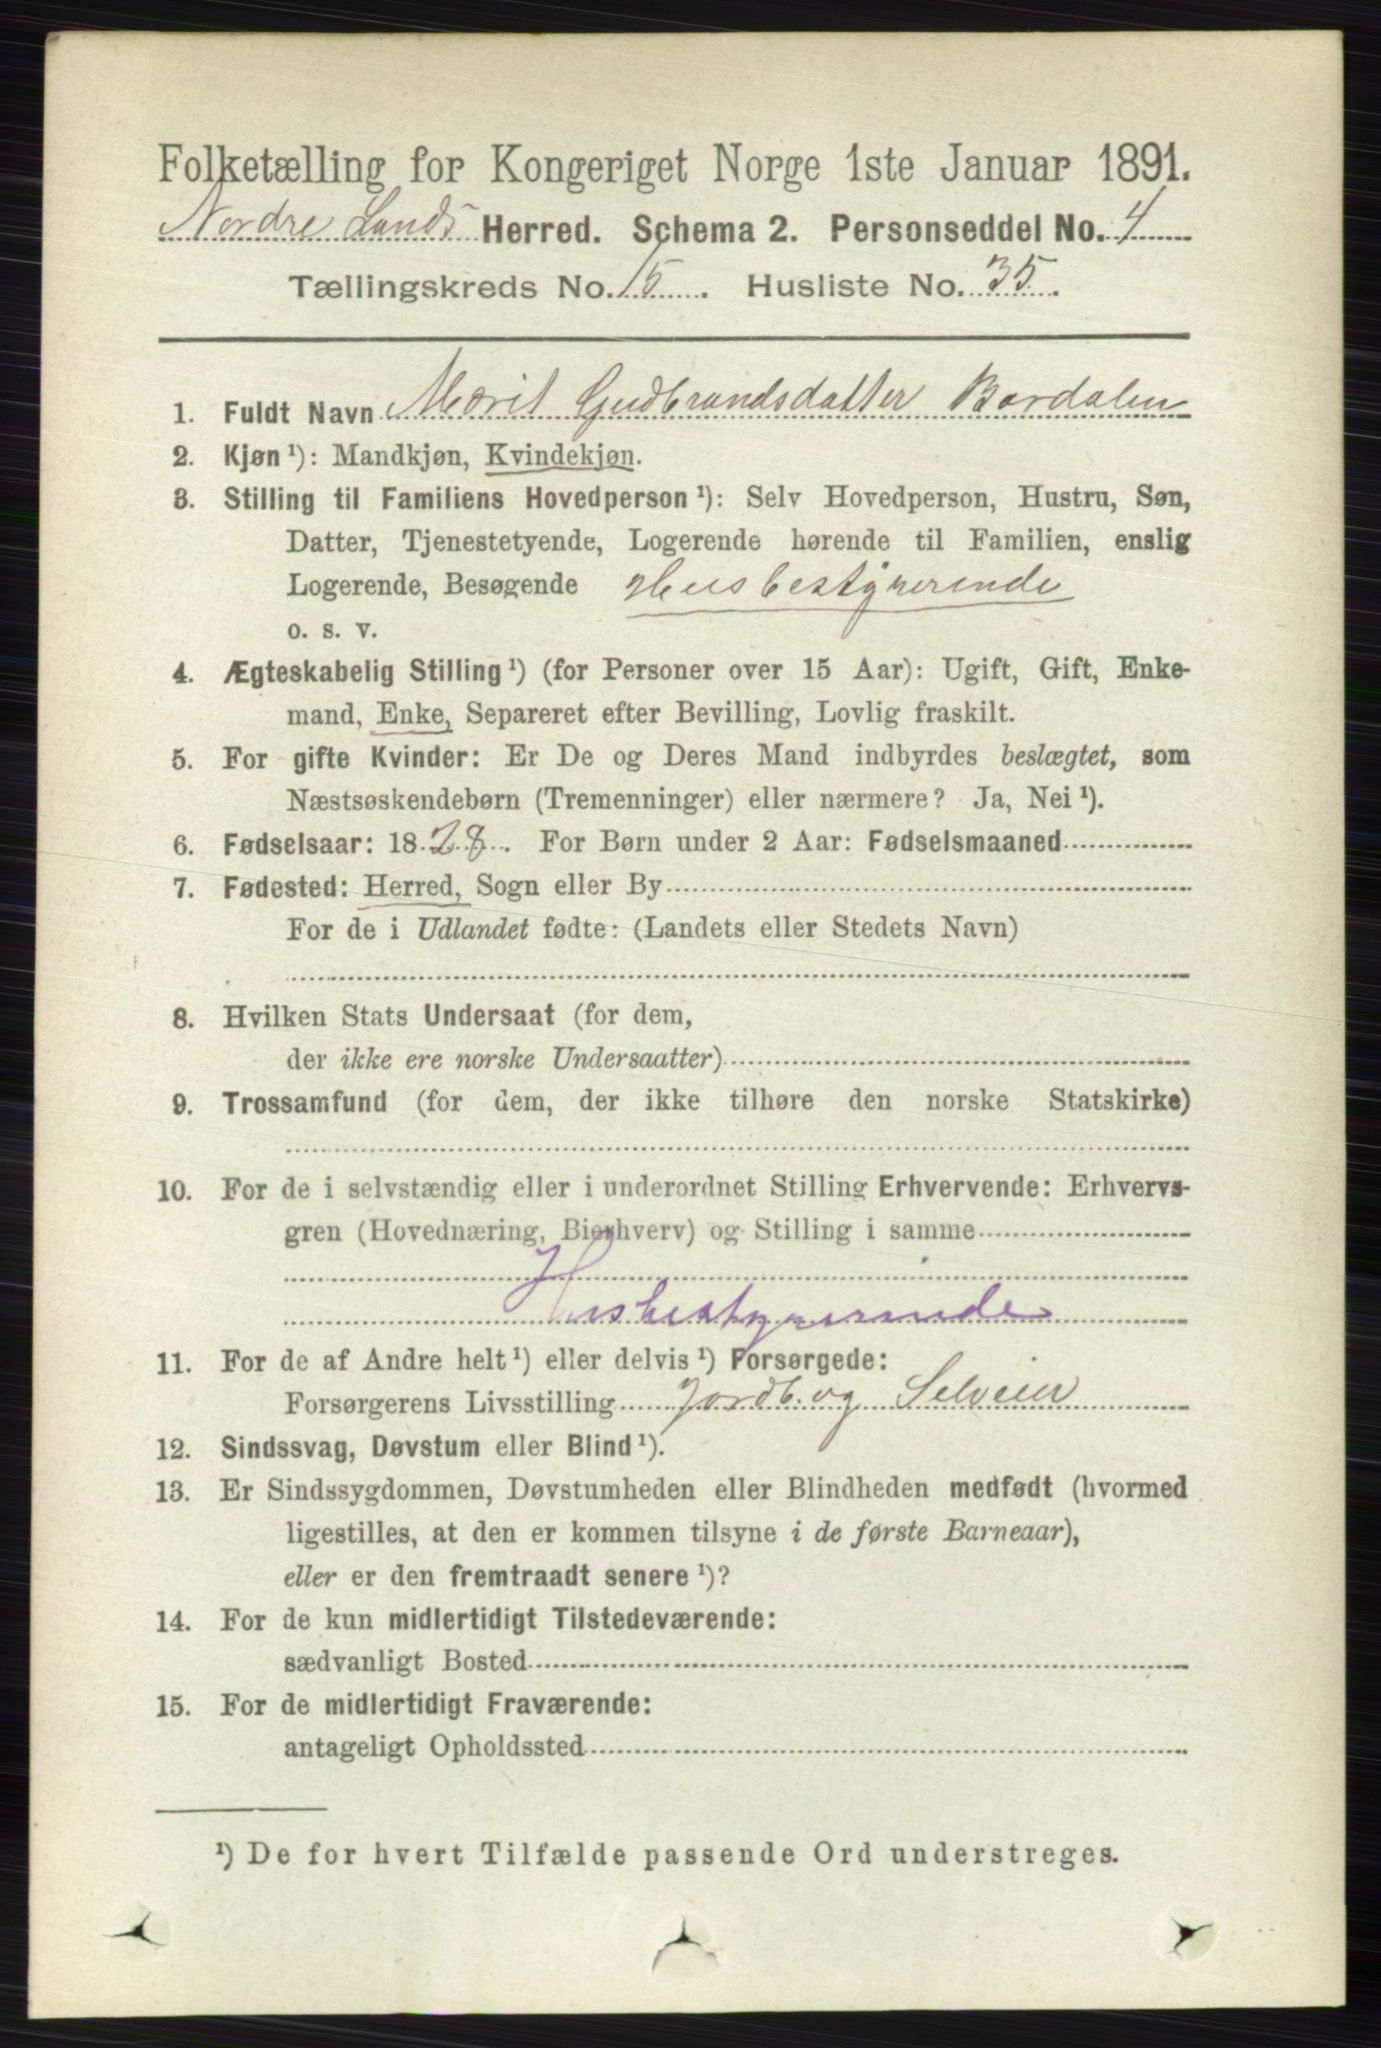 Folketælling for Kongeriget Norge 1ste Januar 1891.
Nordre Lands Herred. Schema 2. Personseddel No. 4
Tællingskreds No. 15. Husliste No. 35.
1. Fuldt Navn Marit Gudbrandsdatter Bardalen
2. Kjøn¹): Mandkjøn, Kvindekjøn.
3. Stilling til Familiens Hovedperson¹): Selv Hovedperson, Hustru, Søn,
Datter, Tjenestetyende, Logerende hørende til Familien, enslig
Logerende, Besøgende Husbestyrerende
o. s. v.
4. Ægteskabelig Stilling¹) (for Personer over 15 Aar): Ugift, Gift, Enke-
mand, Enke, Separeret efter Bevilling, Lovlig fraskilt.
5. For gifte Kvinder: Er De og Deres Mand indbyrdes beslægtet, som
Næstsøskendebørn (Tremenninger) eller nærmere? Ja, Nei¹).
6. Fødselsaar: 1828. For Børn under 2 Aar: Fødselsmaaned
7. Fødested: Herred, Sogn eller By
For de i Udlandet fødte: (Landets eller Stedets Navn)
8. Hvilken Stats Undersaat (for dem,
der ikke ere norske Undersaatter)
9. Trossamfund (for dem, der ikke tilhøre den norske Statskirke)
10. For de i selvstændig eller i underordnet Stilling Erhvervende: Erhvervs-
gren (Hovednæring, Bierhverv) og Stilling i samme
Husbestyrerinde
11. For de af Andre helt¹) eller delvis¹) Forsørgede:
Forsørgerens Livsstilling Jordb. og Selveier
12. Sindssvag, Døvstum eller Blind¹).
13. Er Sindssygdommen, Døvstumheden eller Blindheden medfødt (hvormed
ligestilles, at den er kommen tilsyne i de første Barneaar),
eller er den fremtraadt senere¹)?
14. For de kun midlertidigt Tilstedeværende:
sædvanligt Bosted
15. For de midlertidigt Fraværende:
antageligt Opholdssted
¹) De for hvert Tilfælde passende Ord understreges.